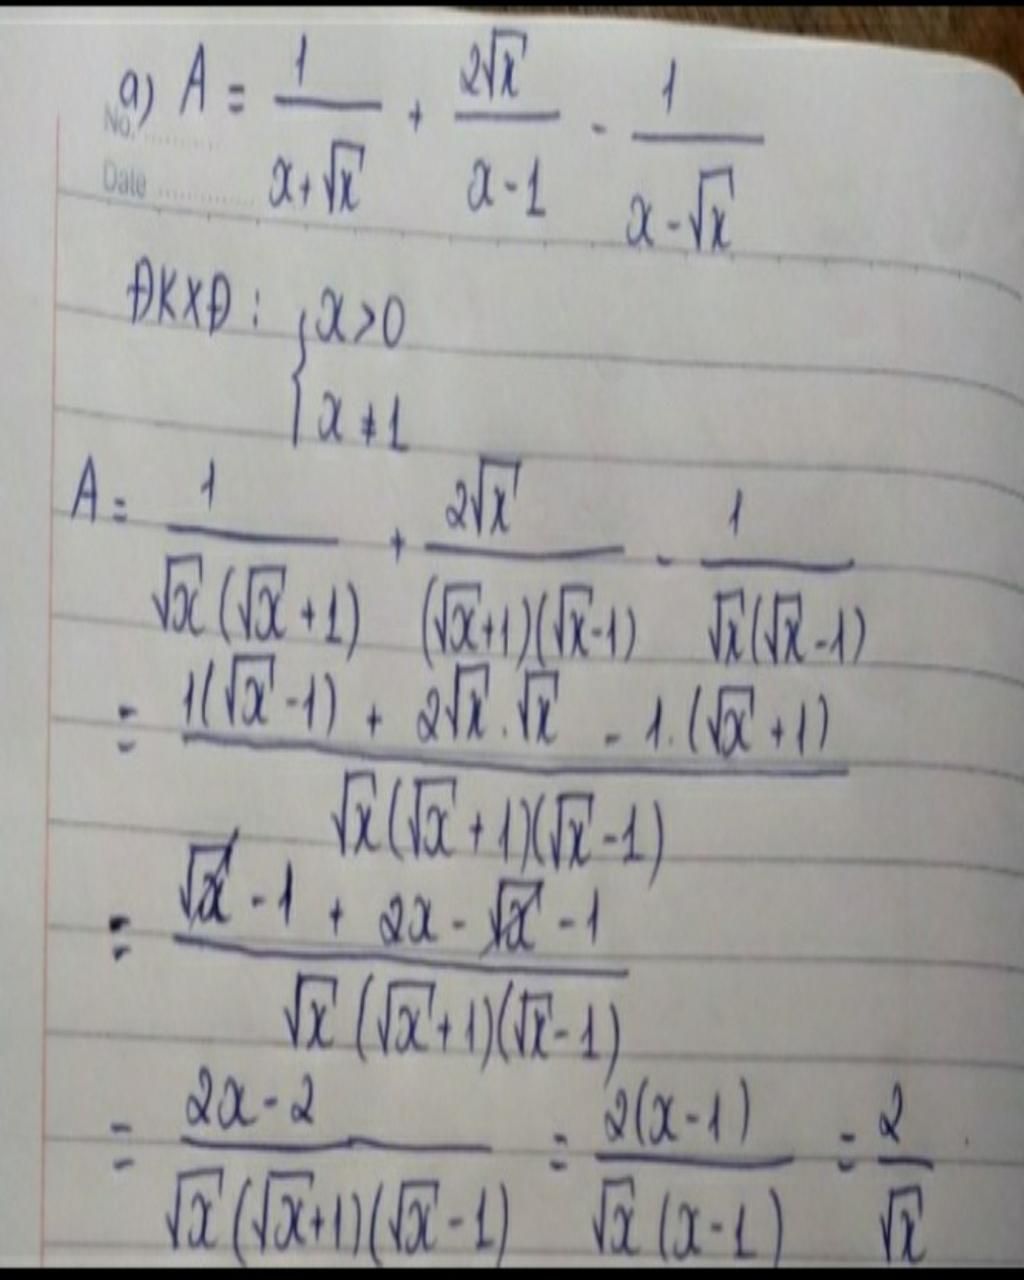 a) A = 1/(x+√x) + 2√x/(x-1) - 1/(x-√x)
No. ............
Date ............
ĐKXĐ : { x > 0
x ≠ 1
A = 1/(√x(√x+1)) + 2√x/((√x+1)(√x-1)) - 1/(√x(√x-1))
= (1(√x-1) + 2√x.√x - 1.(√x+1))/(√x(√x+1)(√x-1))
= (√x - 1 + 2x - √x - 1)/(√x(√x+1)(√x-1))
= (2x-2)/(√x(√x+1)(√x-1)) = 2(x-1)/(√x(x-1)) = 2/√x